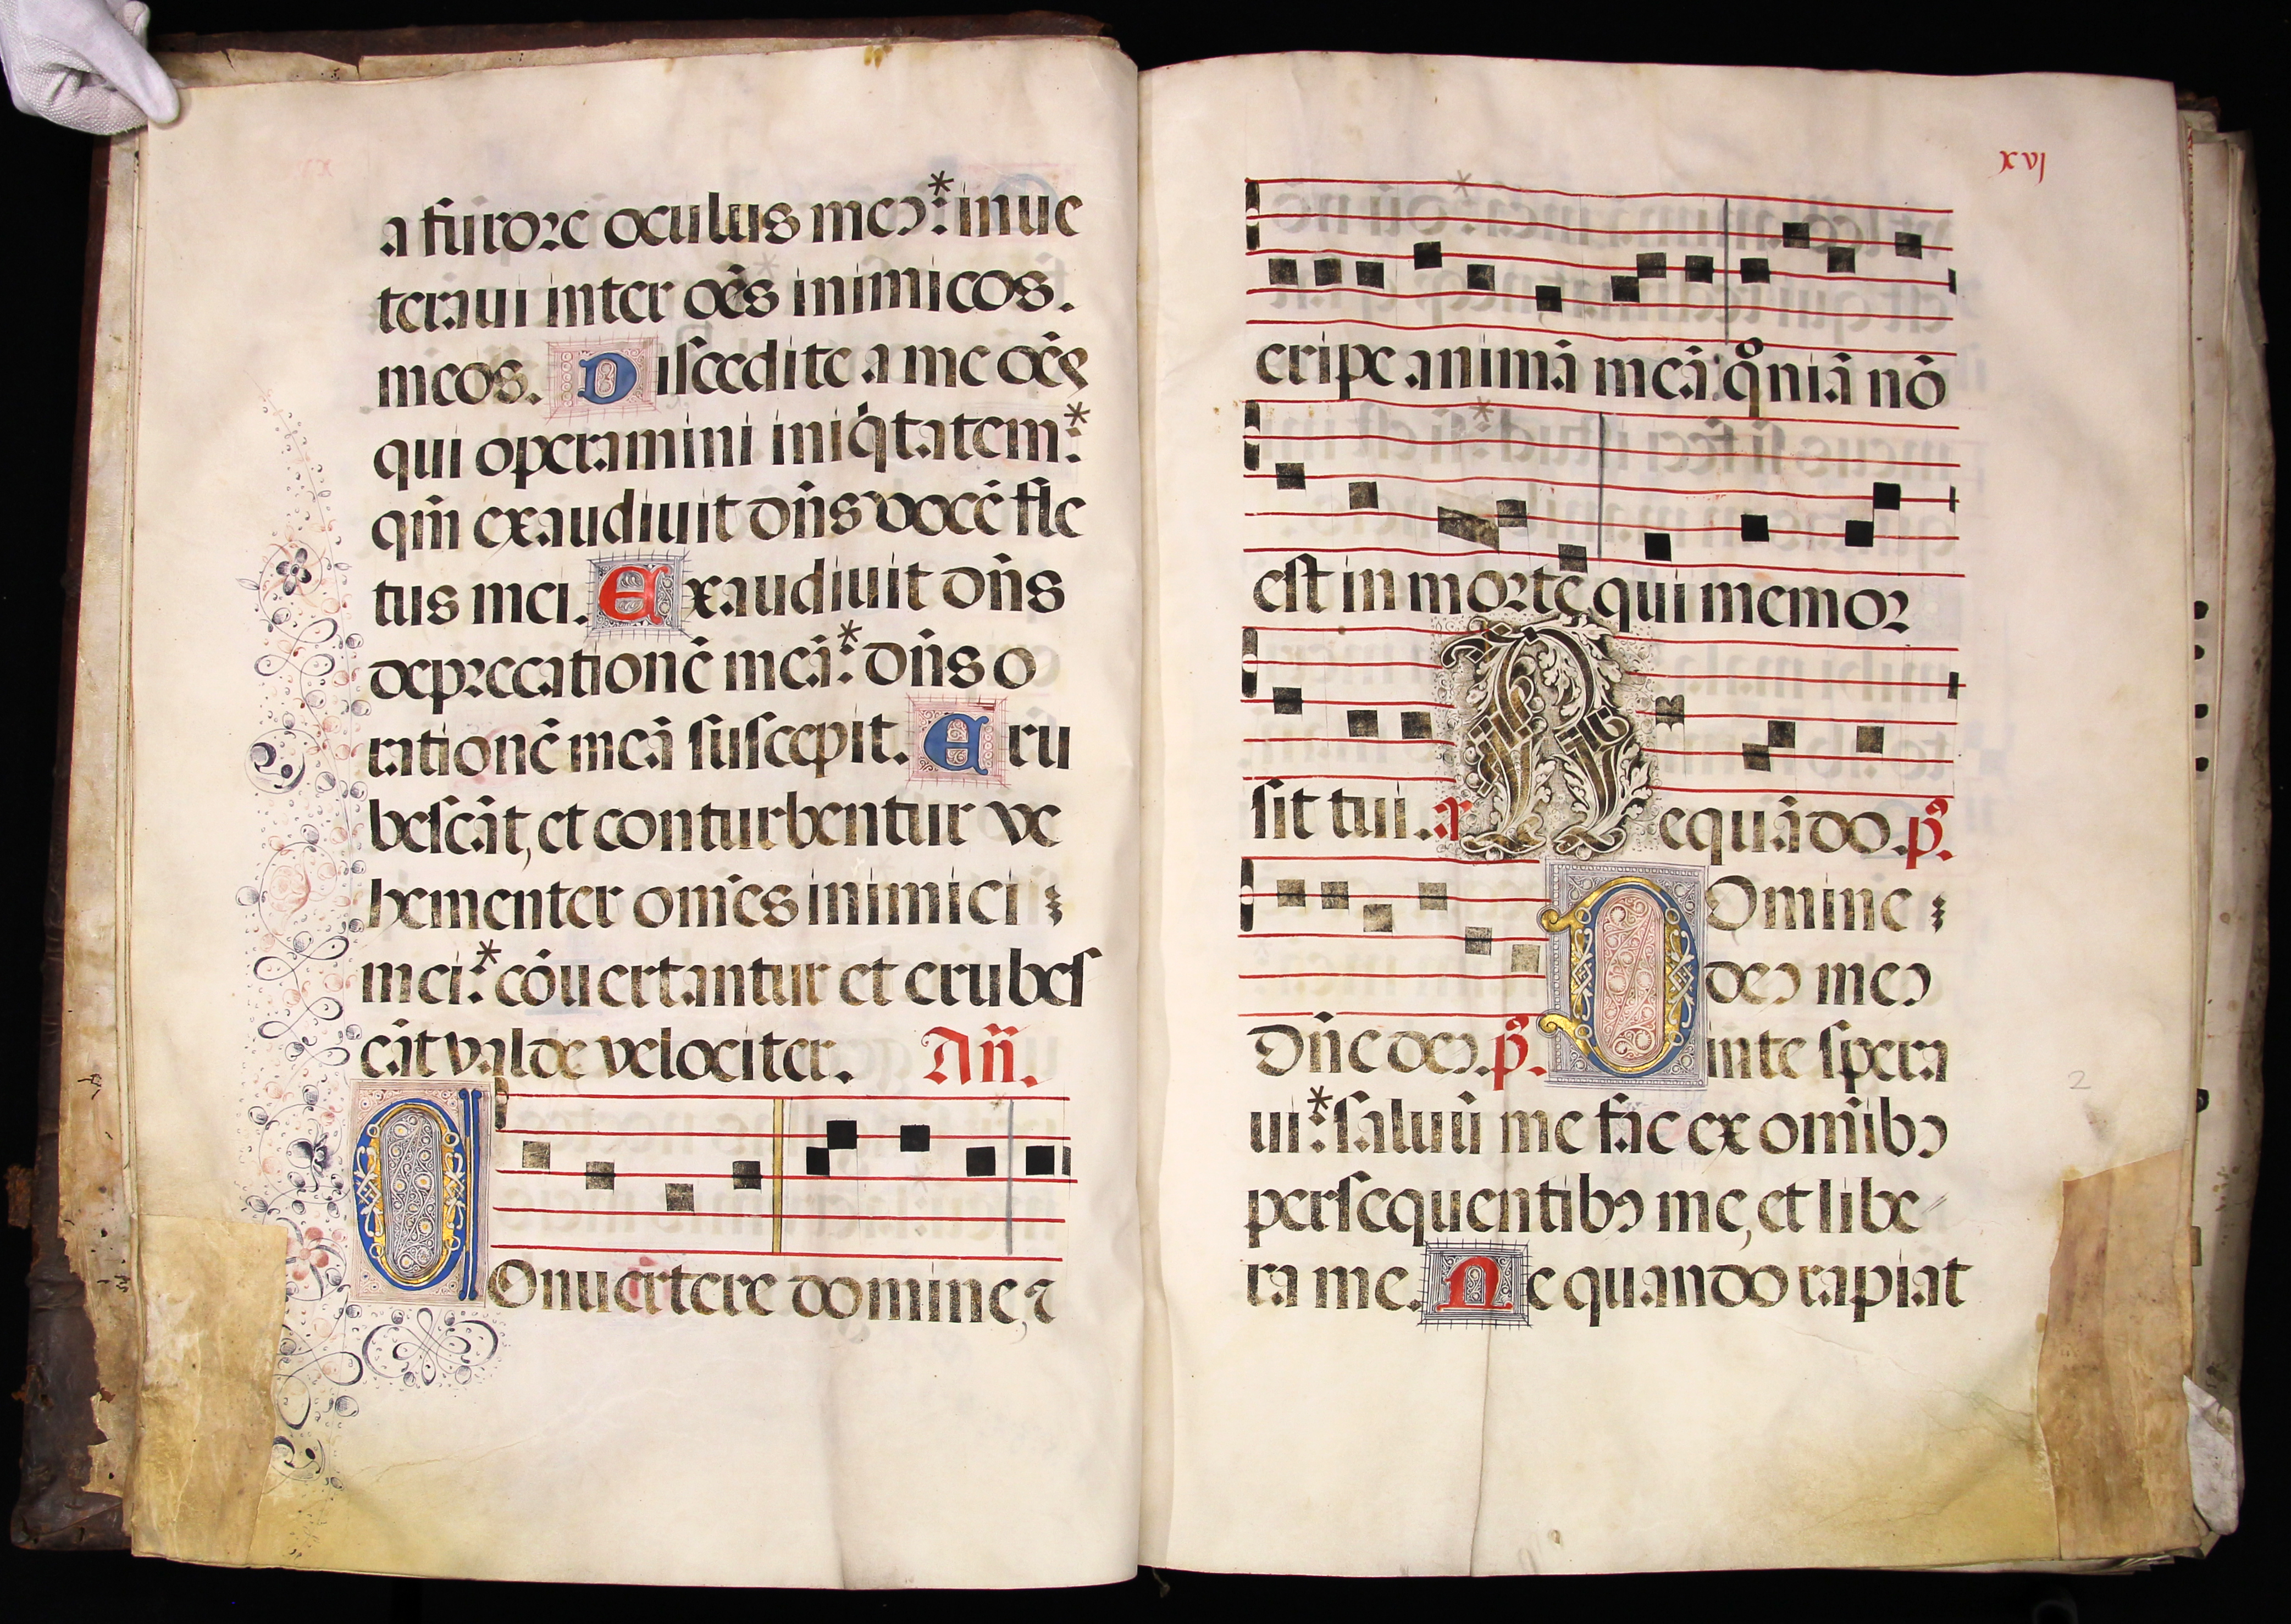 a furore oculus meꝰ:* inue
teraui inter oēs inimicos.
meos. Discedite a me oēs
qui operamini iniq̇tatem:*
qm̄ exaudiuit dn̄s vocē fle
tus mei. Exaudiuit dn̄s
deprecationē meā:* dn̄s o
rationē meā suscepit. Eru
bescāt, et conturbentur ve
hementer om̄es inimici
mei:* cōuertantur et erubes
cāt valde velociter. Añ.
COnuertere domine, ⁊
xvj
eripe animā meā: qͦniā nō
est in morte qui memor
sit tui. a Nequādo. p̄.
Domine
deꝰ meꝰ
Dn̄e deꝰ. p̄. in te spera
ui:* saluū me fac ex om̄ibꝰ
persequentibꝰ me, et libe
ra me. Ne quando rapiat
2